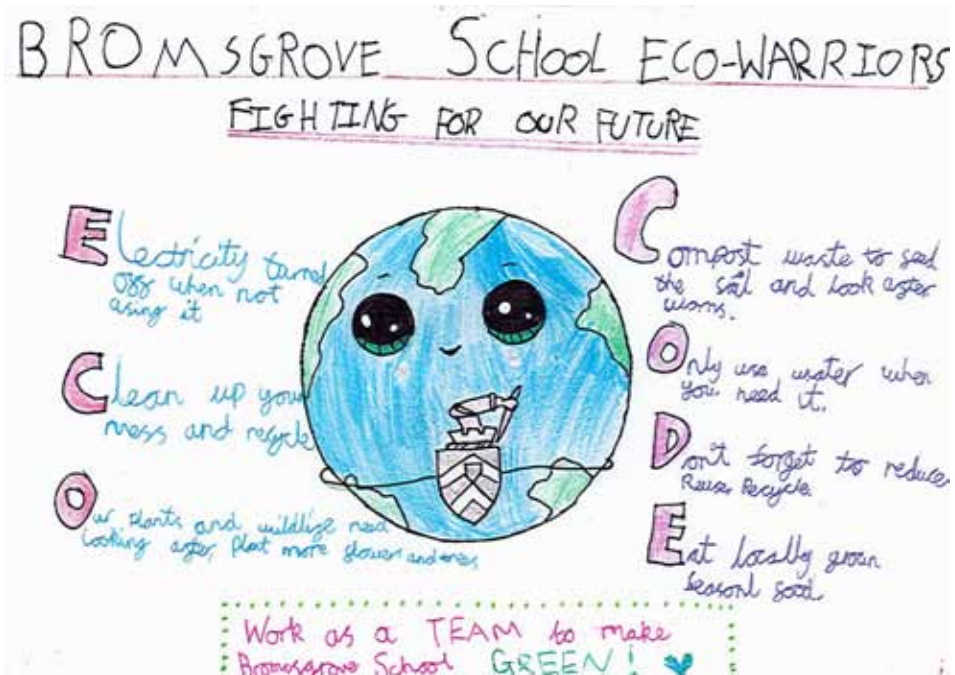 BROMSGROVE SCHOOL ECO-WARRIORS
FIGHTING FOR OUR FUTURE
Electricity turned
off when not
using it
Clean up your
mess and recycle
Our plants and wildlife need
looking after, plant more flowers and trees
Compost waste to seed
the soil and look after
worms.
Only use water when
you need it.
Don't forget to reduce
Reuse Recycle.
Eat locally grown
Seasonl food
Work as a TEAM to make
Bromsgrove School GREEN!